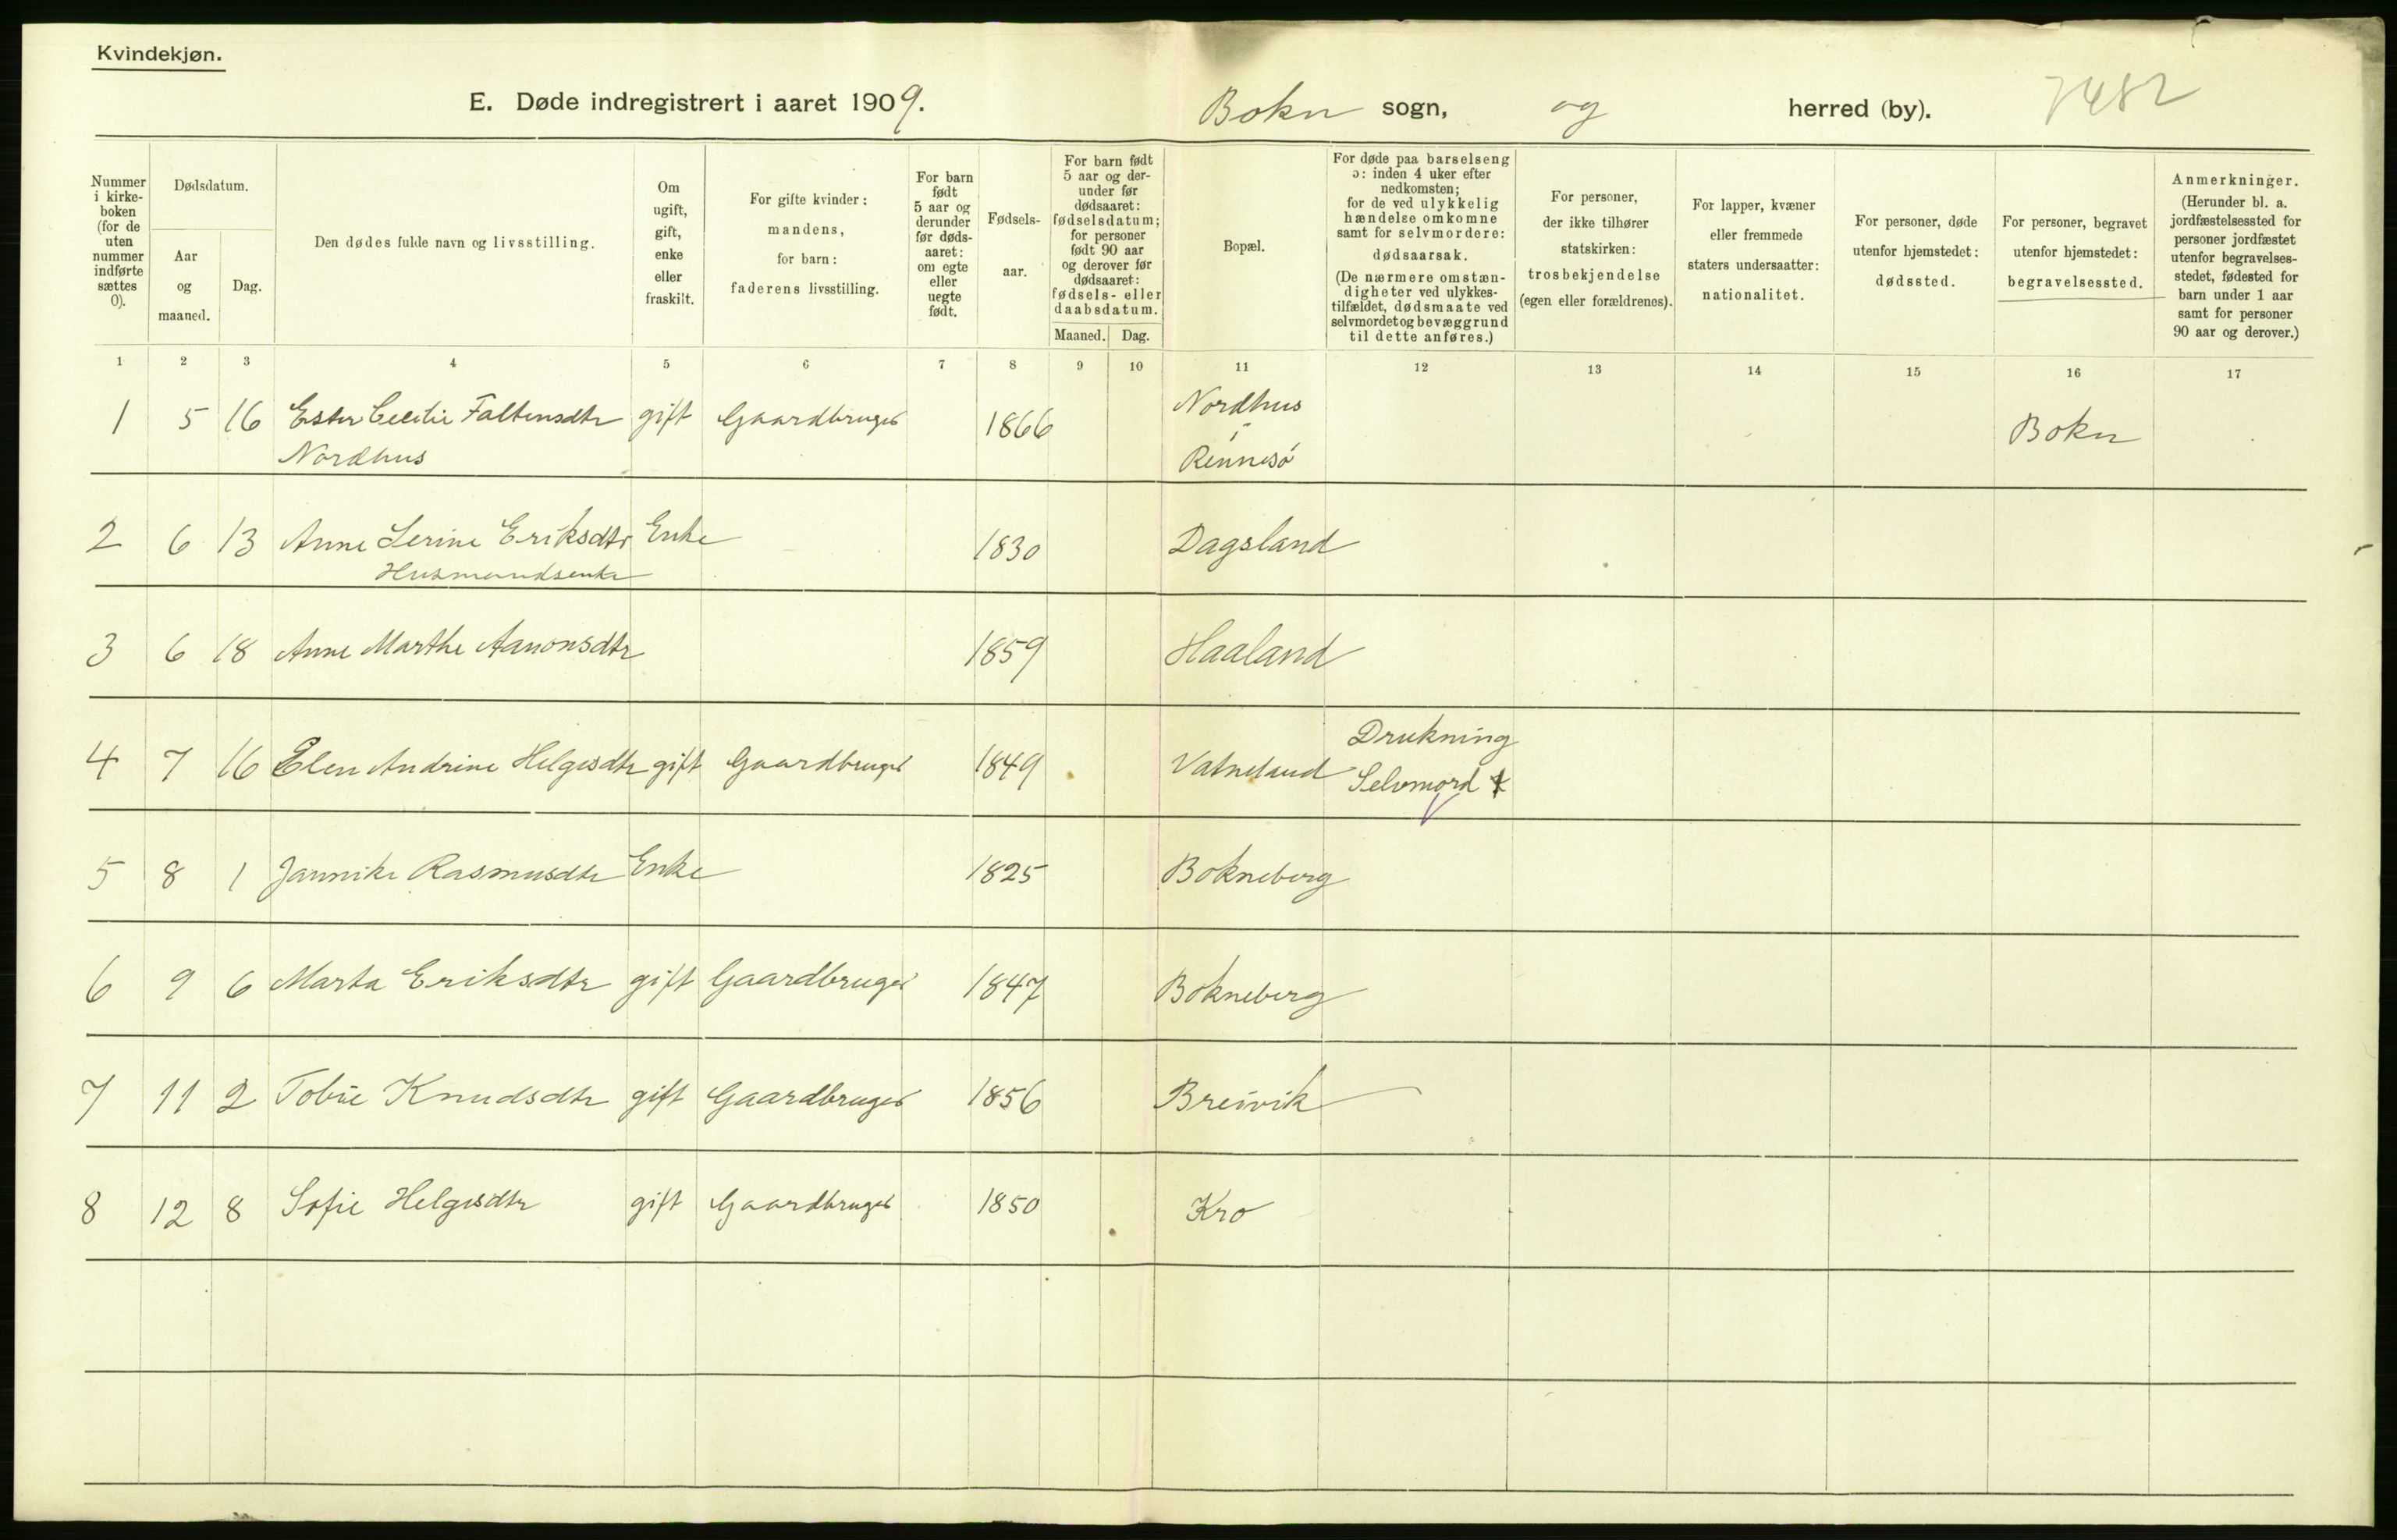 Kvindekjøn.
E. Døde indregistrert i aaret 1909. Bokn sogn, og herred (by). 7482
Nummer i kirke-boken (for de uten nummer indførte sættes 0).
Dødsdatum.
Aar og maaned.
Dag.
Den dødes fulde navn og livsstilling.
Om ugift, gift, enke eller fraskilt.
For gifte kvinder: mandens, for barn: faderens livsstilling.
For barn født 5 aar og derunder før døds-aaret: om egte eller uegte født.
Fødsels-aar.
For barn født 5 aar og der-under før dødsaaret: fødselsdatum; for personer født 90 aar og derover før dødsaaret: fødsels- eller daabsdatum.
Maaned. Dag.
Bopæl.
For døde paa barselseng ɔ: inden 4 uker efter nedkomsten; for de ved ulykkelig hændelse omkomne samt for selvmordere: dødsaarsak. (De nærmere omstæn-digheter ved ulykkes-tilfældet, dødsmaate ved selvmordet og bevæggrund til dette anføres.)
For personer, der ikke tilhører statskirken: trosbekjendelse (egen eller forældrenes).
For lapper, kvæner eller fremmede staters undersaatter: nationalitet.
For personer, døde utenfor hjemstedet: dødssted.
For personer, begravet utenfor hjemstedet: begravelsessted.
Anmerkninger. (Herunder bl. a. jordfæstelsessted for personer jordfæstet utenfor begravelses-stedet, fødested for barn under 1 aar samt for personer 90 aar og derover.)
1 2 3 4 5 6 7 8 9 10 11 12 13 14 15 16 17
1 5 16 Ester Cecilie Faltensdtr gift Gaardbruger 1866 Nordhus Bokn
Nordhus i
Rennesö
2 6 13 Anne Serine Eriksdtr Enke 1830 Dagsland
Husmandsenke
3 6 18 Anne Marthe Aanonsdtr 1859 Haaland
4 7 16 Elen Andrine Helgesdtr gift Gaardbruger 1849 Vatneland Drukning
Selvmord
5 8 1 Jannike Rasmusdtr Enke 1825 Bokneberg
6 9 6 Marta Eriksdtr gift Gaardbruger 1847 Bokneberg
7 11 2 Tobie Knudsdtr gift Gaardbruger 1856 Breivik
8 12 8 Sofie Helgesdtr gift Gaardbruger 1850 Kro